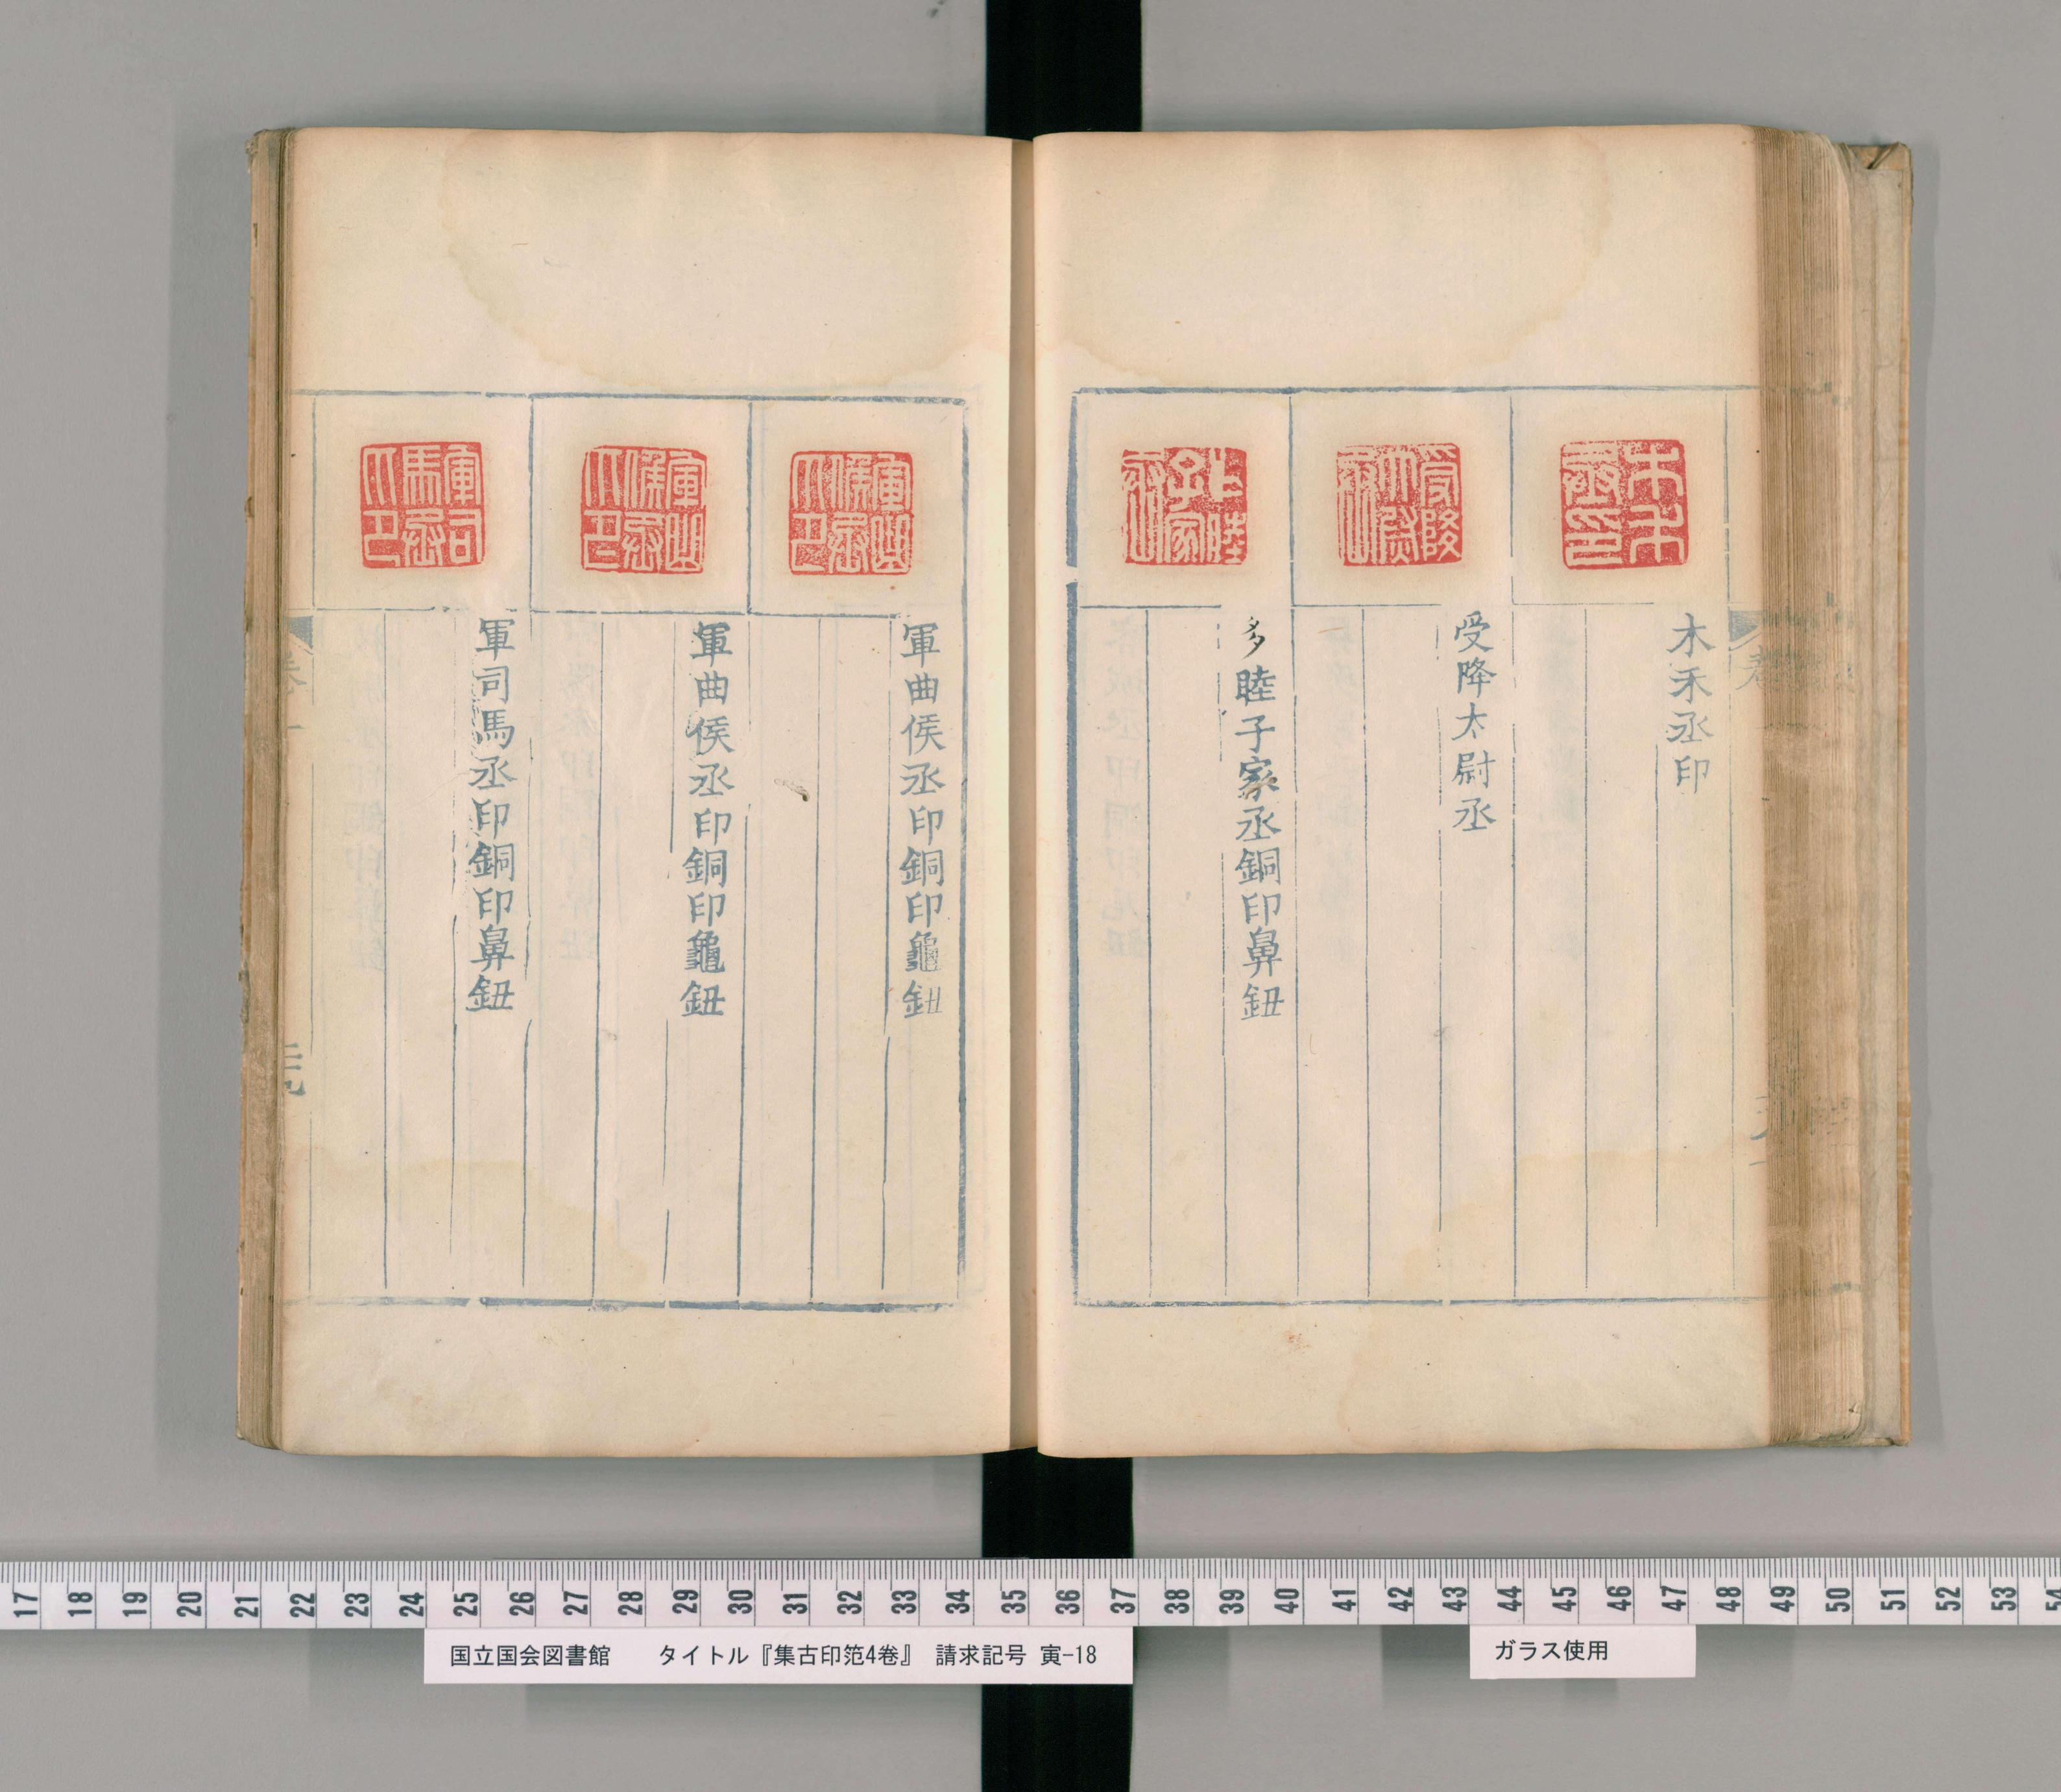 木禾丞印
受降太尉丞
多睦子家丞銅印鼻鈕
軍曲侯丞印銅印龜鈕
軍曲侯丞印銅印龜鈕
軍司馬丞印銅印鼻鈕
17 18 19 20 21 22 23 24 25 26 27 28 29 30 31 32 33 34 35 36 37 38 39 40 41 42 43 44 45 46 47 48 49 50 51 52 53 54
国立国会図書館 タイトル『集古印笵4巻』 請求記号 寅-18
ガラス使用